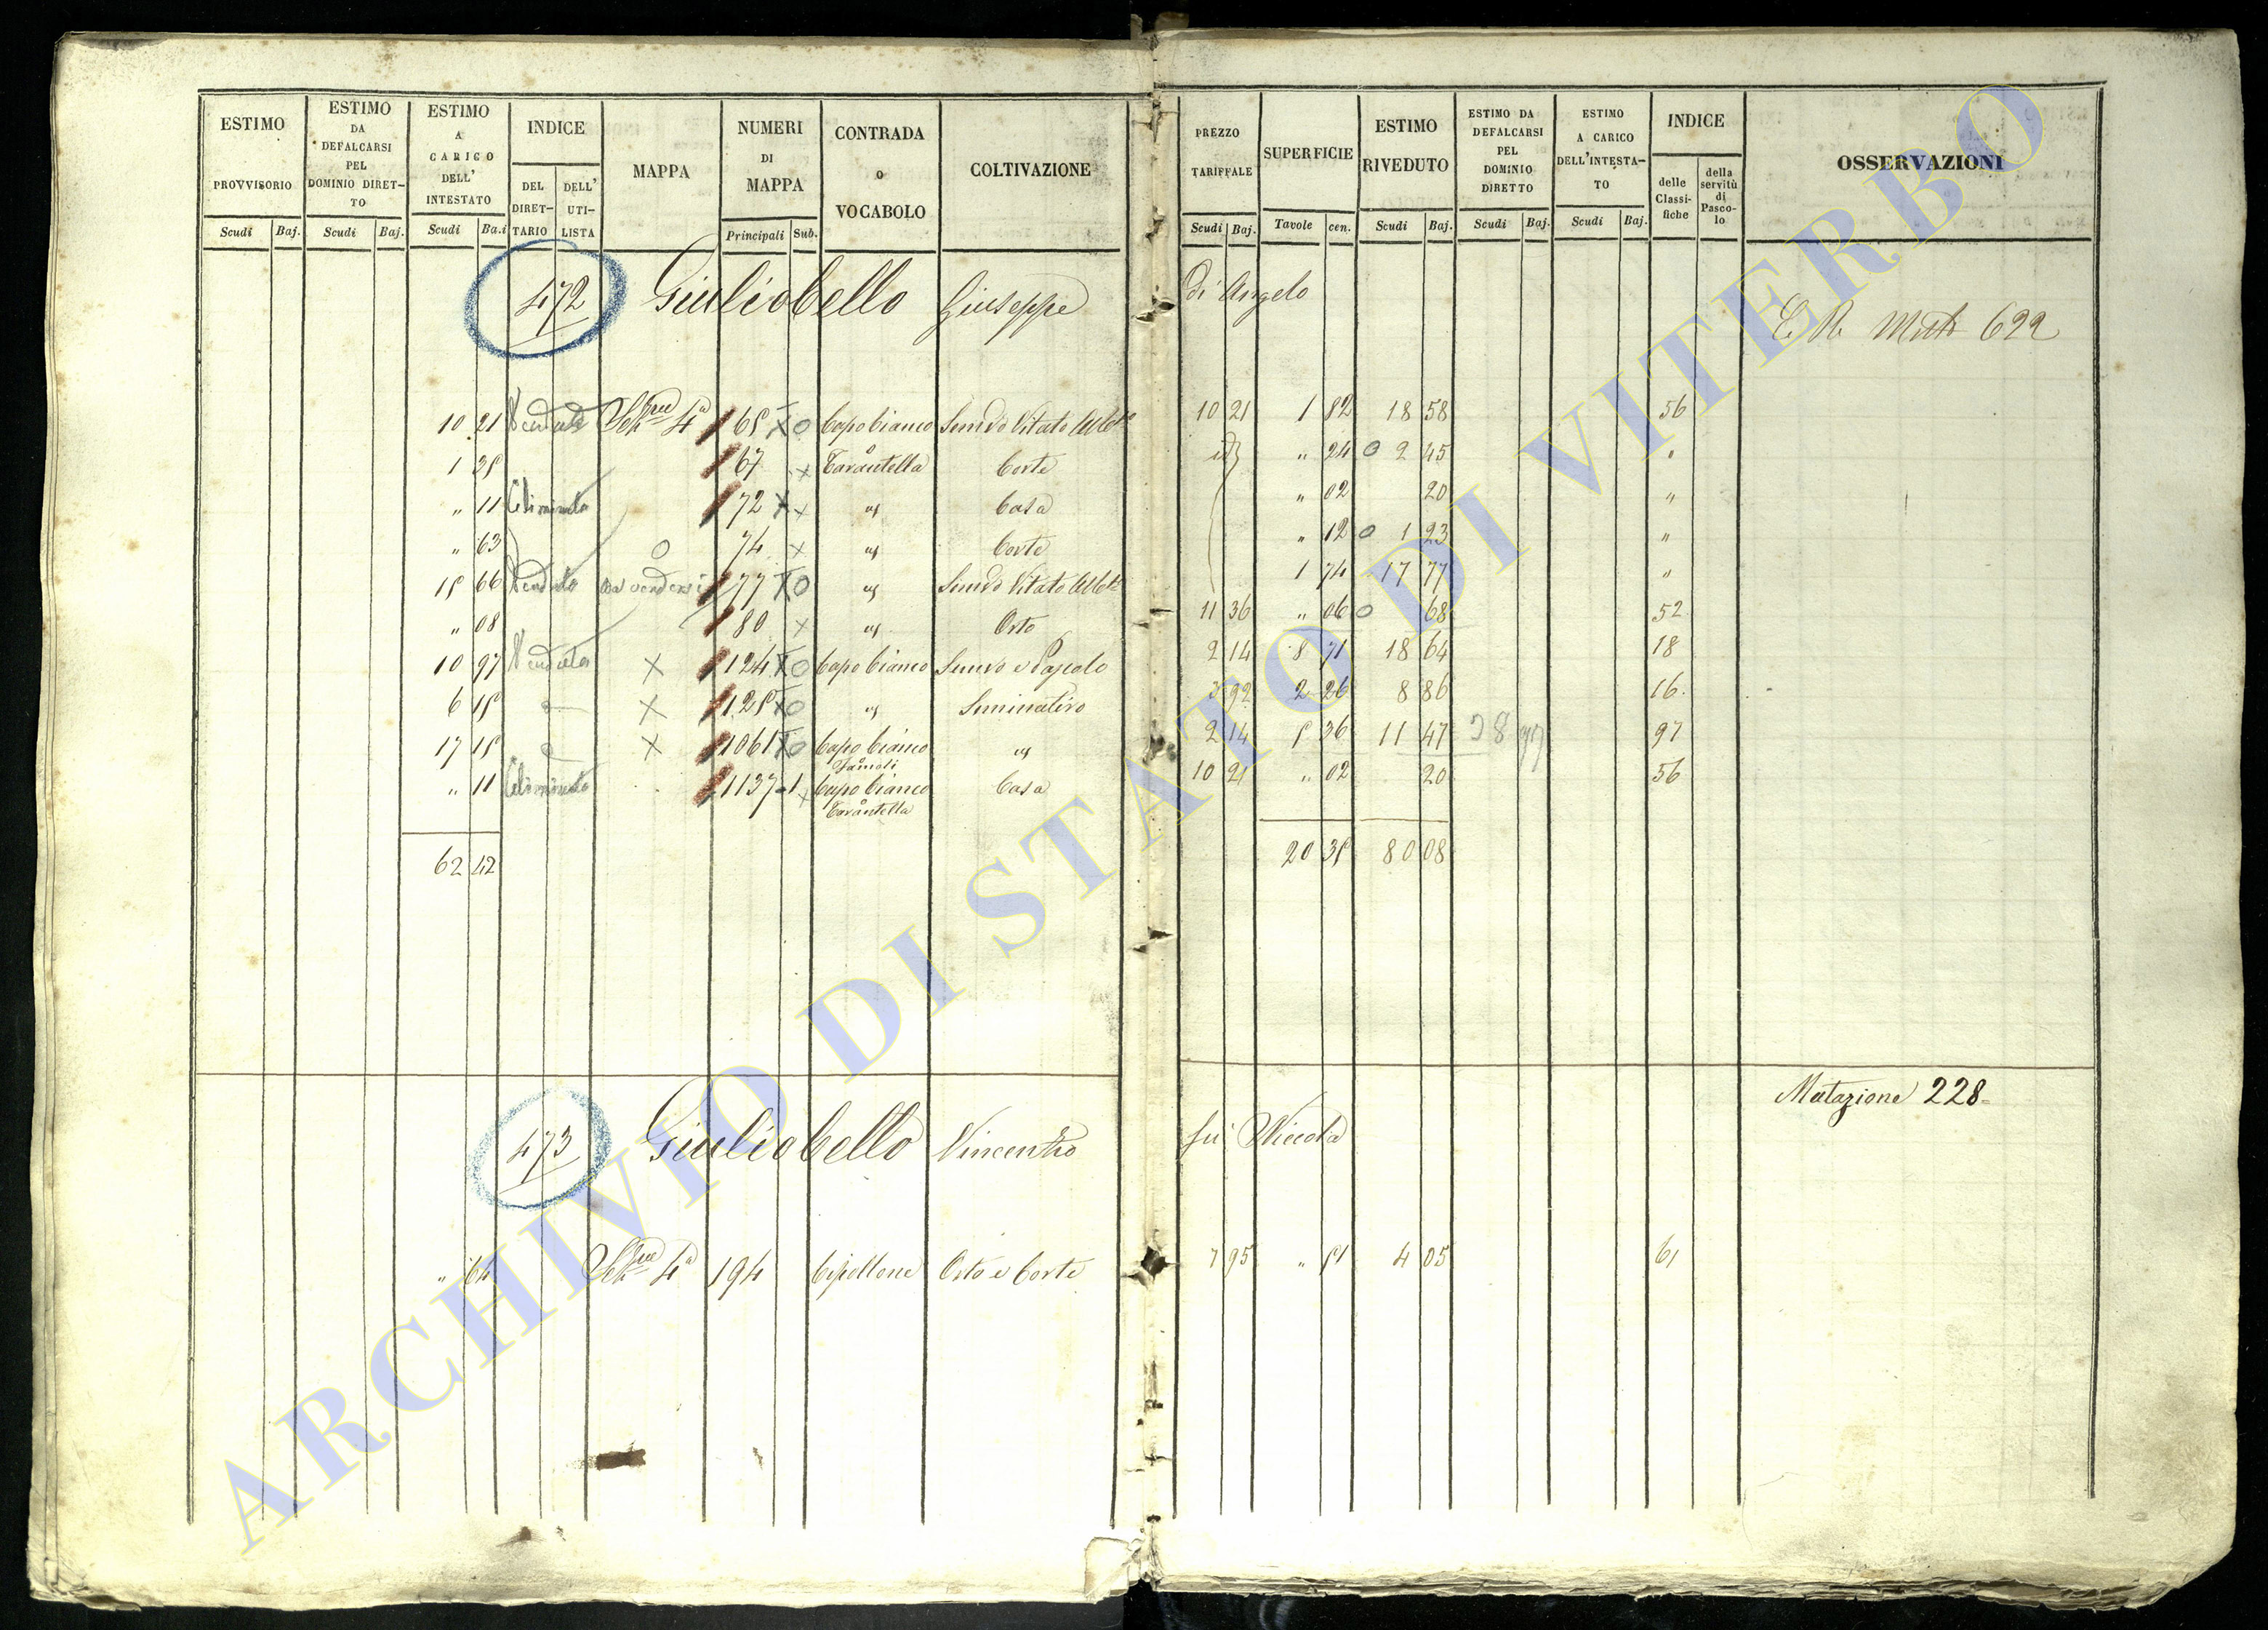 ESTIMO PROVVISORIO Scudi Baj.
ESTIMO DA DEFALCARSI PEL DOMINIO DIRETTO Scudi Baj.
ESTIMO A CARICO DELL' INTESTATO Scudi Ba.i
INDICE DEL DIRETTARIO DELL' UTILISTA
MAPPA
NUMERI DI MAPPA Principali Sub.
CONTRADA o VOCABOLO
COLTIVAZIONE
PREZZO TARIFFALE Scudi Baj.
SUPERFICIE Tavole cen.
ESTIMO RIVEDUTO Scudi Baj.
ESTIMO DA DEFALCARSI PEL DOMINIO DIRETTO Scudi Baj.
ESTIMO A CARICO DELL'INTESTATO Scudi Baj.
INDICE delle Classifiche della servitù di Pascolo
OSSERVAZIONI
472 Giuliobello Giuseppe di Angelo
622
10 21 Venduto 4a 65 X O Capo bianco 10 21 1 82 18 58 56
67 x Tarantella Corte " 24 O 2 45 "
" 11 Eliminato 72 X x Casa " 02 20 "
" 63 O 74 x Corte " 12 O 1 23 "
15 66 Venduto da vendersi 77 X O 1 74 17 77 "
" 08 80 x Orto 11 36 " 06 O 68 52
10 97 Venduto X 124 X O Capo bianco Semvo e Pascolo 2 14 8 71 18 64 18
6 15 X 125 X O Seminativo 3 92 2 26 8 86 16
17 15 X 1061 X O Capo bianco 2 14 5 36 11 47 97
" 11 Eliminato 1137 1 x Capo bianco Casa 10 21 " 02 20 56
Tarantella
62 42 20 35 80 08
Mutazione 228
473 Giuliobello Vincenzo fu Niccola
" 64 4a 194 Cipollone Orto e Corte 7 95 " 51 4 05 61
ARCHIVIO DI STATO DI VITERBO